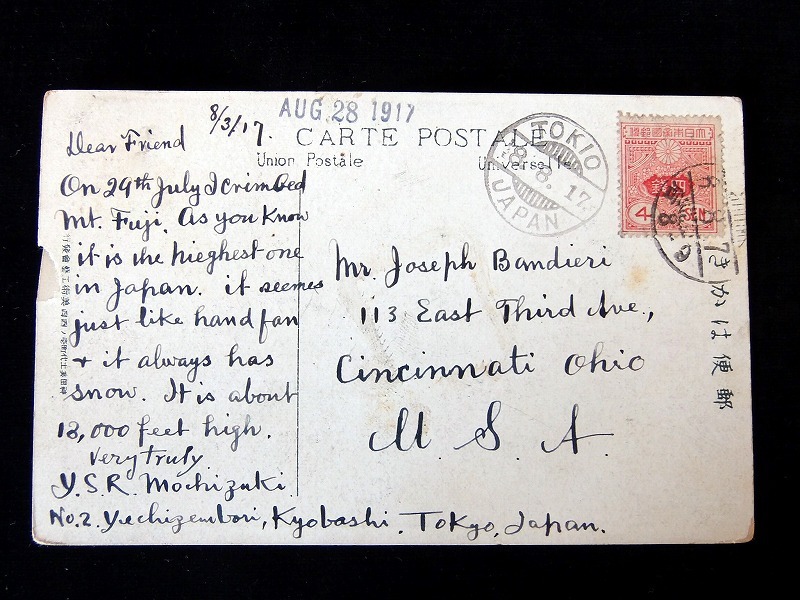 AUG 28 1917
8/3/17.
CARTE POSTALE
Union Postale Universelle
TOKIO
8.8.17
JAPAN
大日本帝國郵便
4
Dear Friend
On 29th July I crimbed
Mt. Fuji. As you know
it is the hieghest one
in Japan. it seemes
just like hand fan
+ it always has
snow. It is about
13,000 feet high.
Very truly
Y.S.R. Mochizuki.
No.2. Yechizembori, Kyobashi. Tokyo, Japan.
Mr. Joseph Bandieri
113 East Third Ave.,
Cincinnati Ohio
U. S. A.
郵便はかき